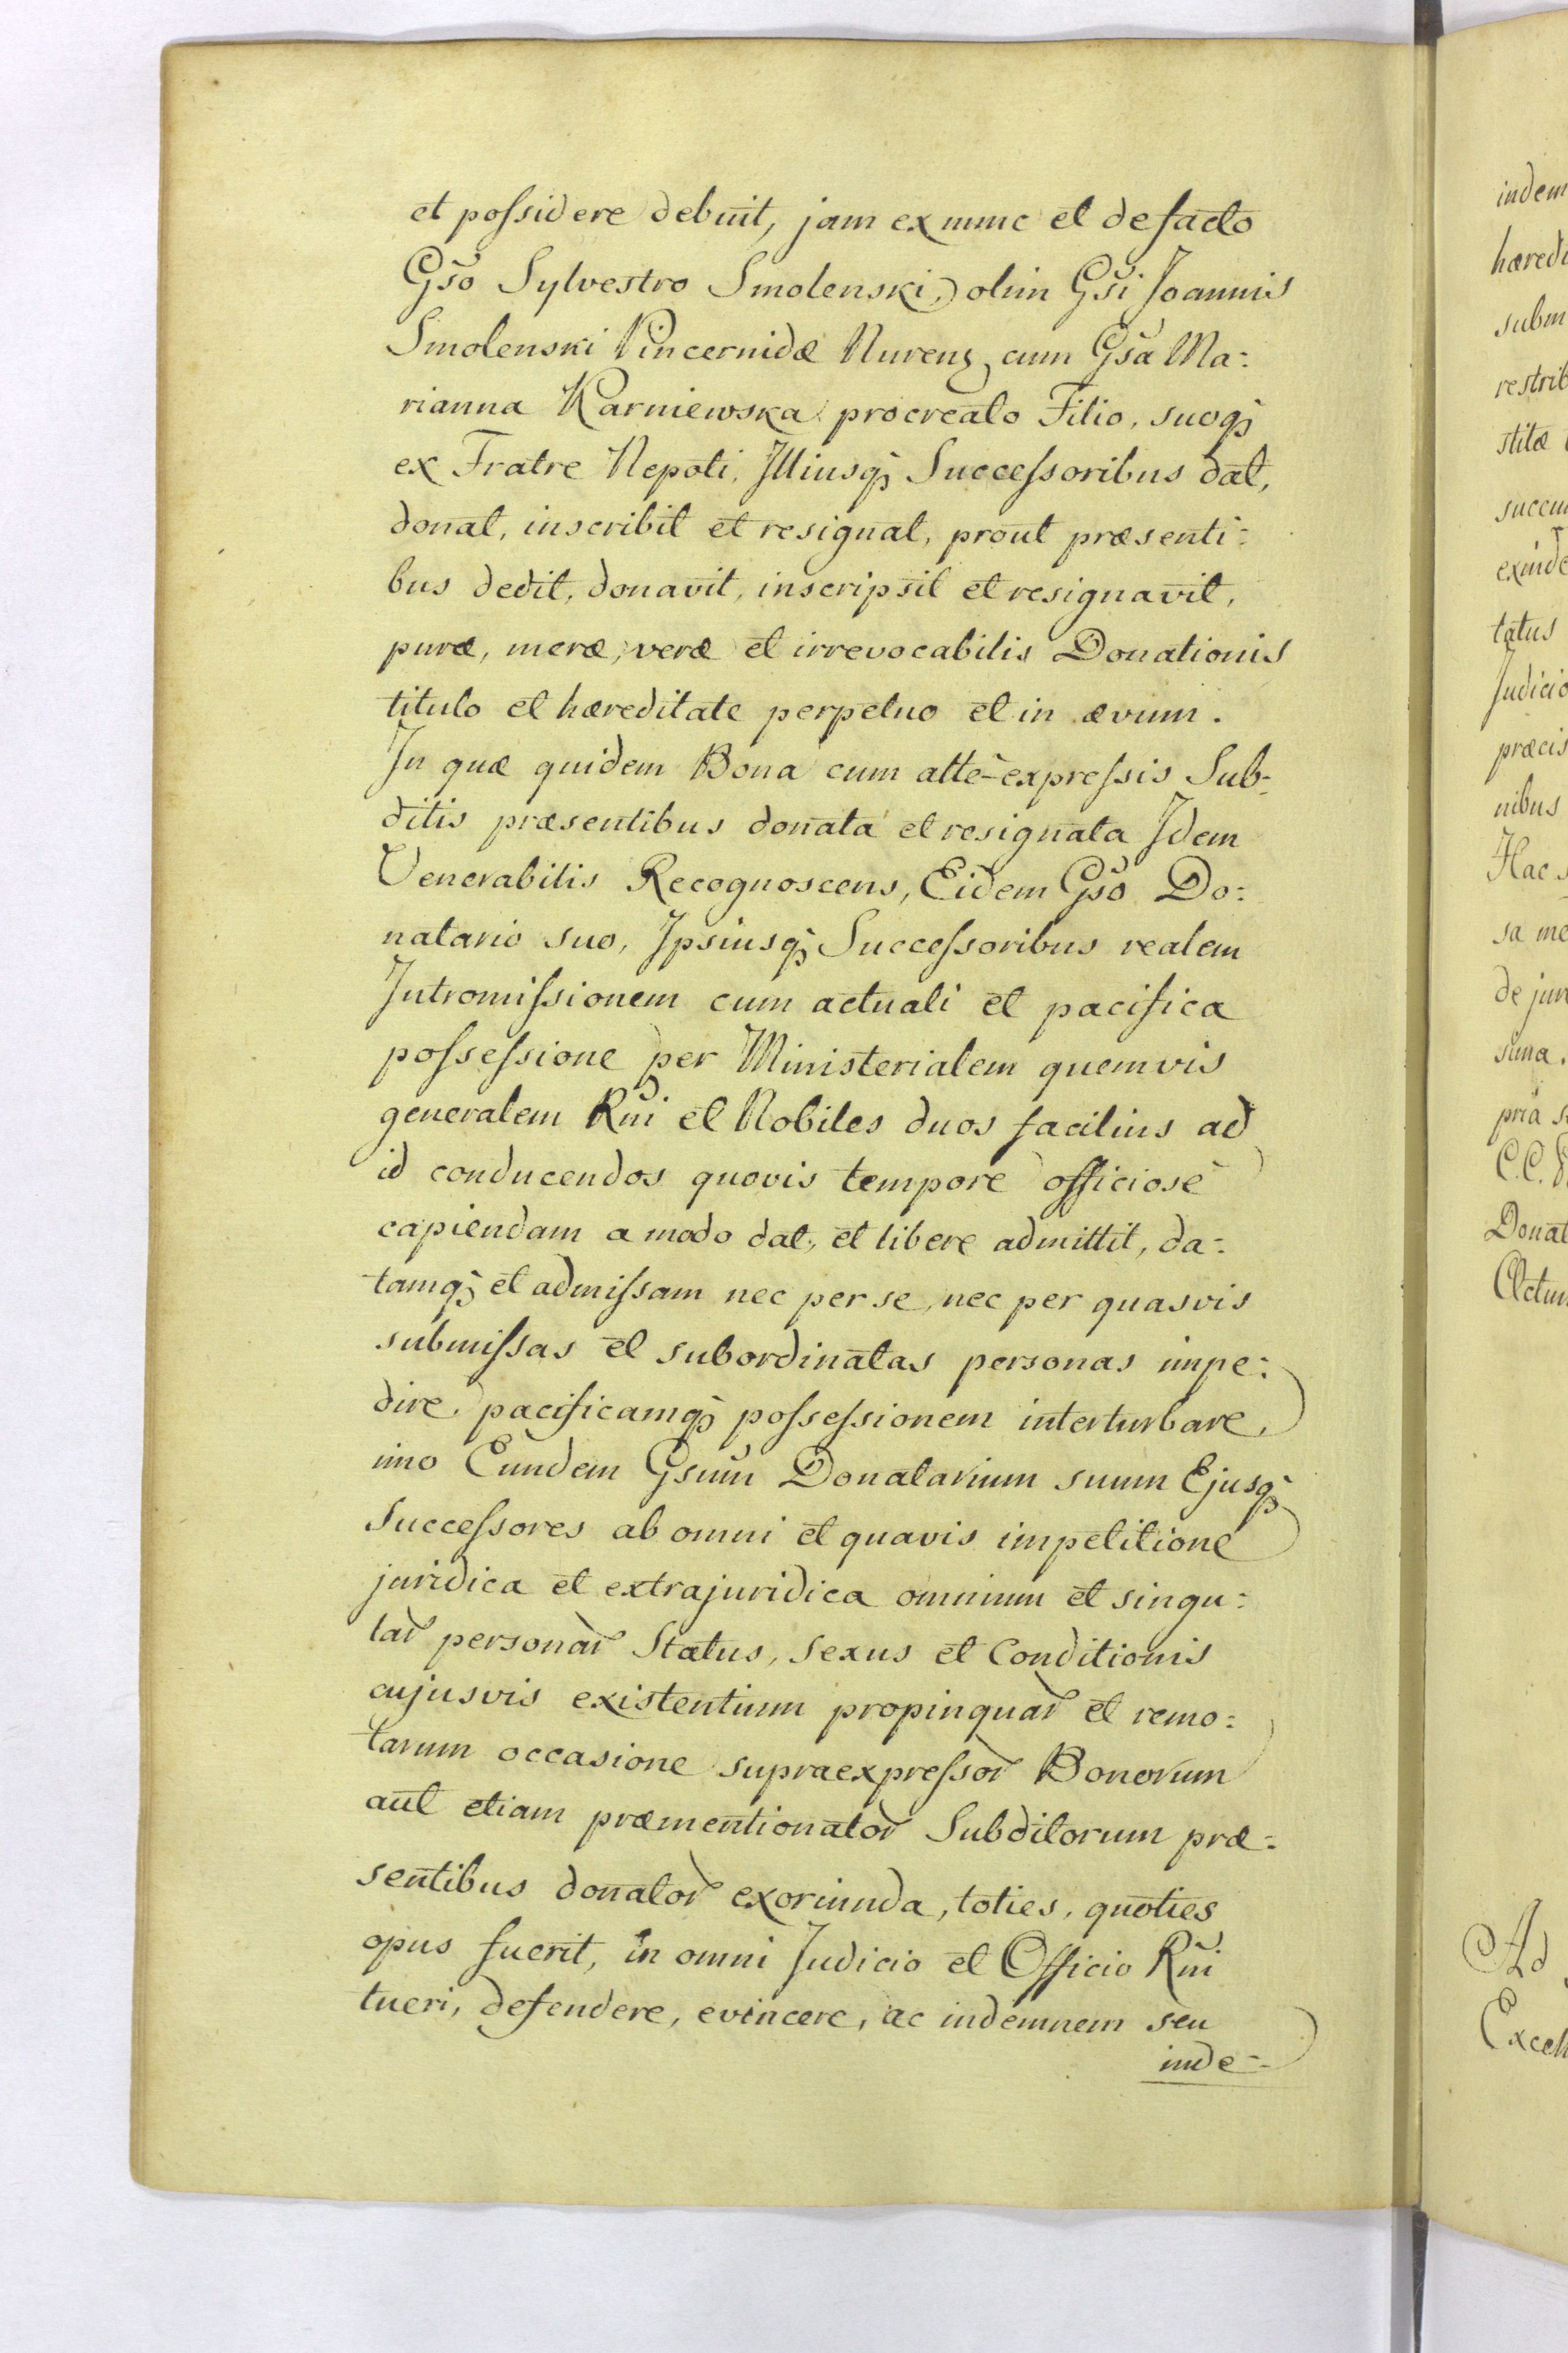 et possidere debuit, jam ex nunc et de facto
Gso Sylvestro Smolenski, olim Gsi Joannis
Smolenski Pincernidæ Nurens, cum Gsa Ma=
rianna Karniewska procreato Filio, suoq;
ex Fratre Nepoti, Illiusq; Successoribus dat,
donat, inscribit et resignat, prout præsenti=
bus dedit, donavit, inscripsit et resignavit,
puræ, meræ, veræ et irrevocabilis Donationis
titulo et hæreditate perpetuo et in ævum.
In quæ quidem Bona cum atte-expressis Sub-
ditis præsentibus donata et resignata Idem
Venerabilis Recognoscens, Eidem Gso Do=
natario suo, Ipsiusq; Successoribus realem
Intromissionem cum actuali et pacifica
possessione per Ministerialem quemvis
generalem Rni et Nobiles duos facilius ad
id conducendos quovis tempore officiosè
capiendam a modo dat, et libere admittit, da=
tamq; et admissam nec per se, nec per quasvis
submissas et subordinatas personas impe=
dire, pacificamq; possessionem interturbare,
imo Eundem Gsum Donatarium suum Ejusq;
Successores ab omni et quavis impetitione
juridica et extrajuridica omnium et singu=
lar personar Status, sexus et Conditionis
cujusvis existentium propinquar et remo=
tarum occasione supraexpressor Bonorum
aut etiam præmentionator Subditorum præ=
sentibus donator exoriunda, toties, quoties
opus fuerit, in omni Judicio et Officio Rni
tueri, defendere, evincere, ac indemnem seu
inde-
indem
hæredi
subm
restrib
stitæ
succu
exinde
tatus
Judicio
præcis
nibus
Hac s
sa me
de jur
sima.
pria s
C.C.
Donat
Actum
Ad
Excell